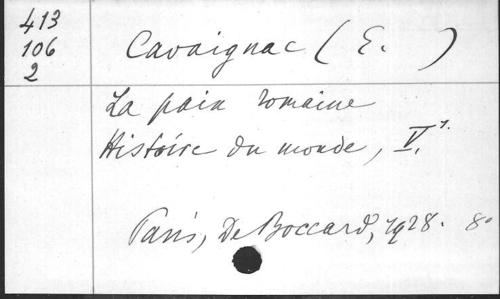 413
106
2
Cavaignac (E. )
La paix romaine
Histoire du monde, V.¹
Paris, De Boccard, 1928. 8°